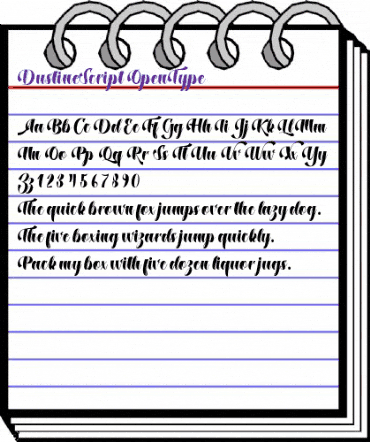 DustineScript OpenType
Aa Bb Cc Dd Ee Ff Gg Hh Ii Jj Kk Ll Mm
Nn Oo Pp Qq Rr Ss Tt Uu Vv Ww Xx Yy
Zz 1 2 3 4 5 6 7 8 9 0
The quick brown fox jumps over the lazy dog.
The five boxing wizards jump quickly.
Pack my box with five dozen liquor jugs.